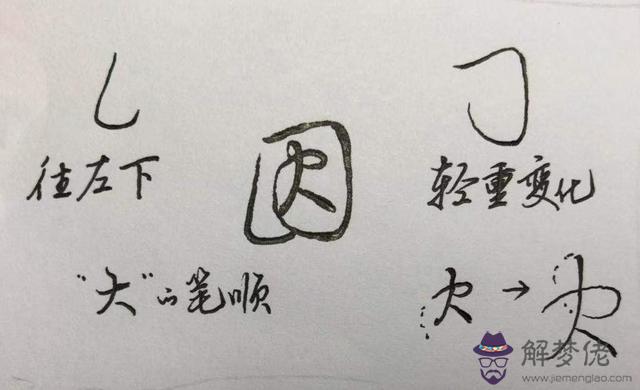 因
往左下
轻重变化
"大"的笔顺
大→大
解梦佬
www.jiemenglao.com